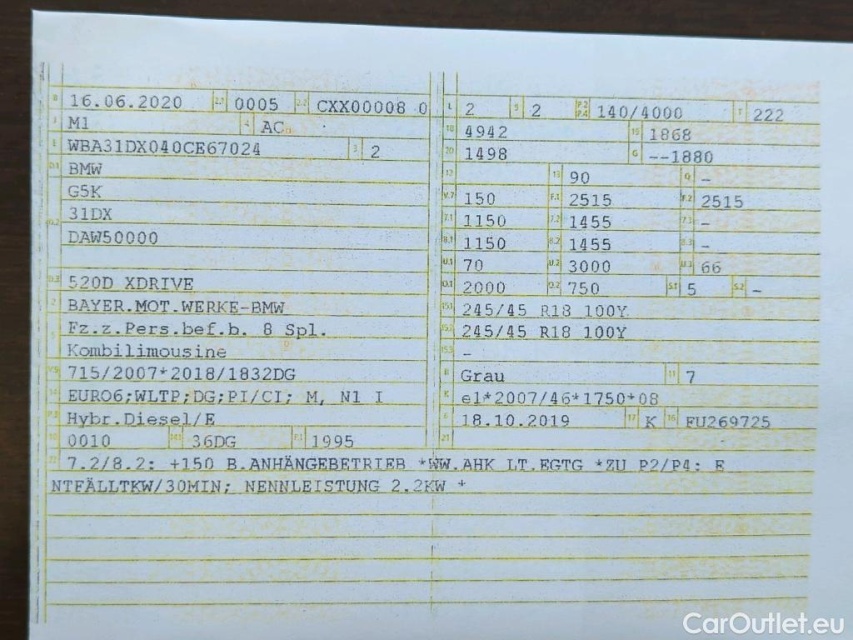 B 16.06.2020 2.1 0005 2.2 CXX00008 0
J M1 4 AC
E WBA31DX040CE67024 3 2
D.1 BMW
G5K
D.2 31DX
DAW50000
D.3 520D XDRIVE
2 BAYER.MOT.WERKE-BMW
5 Fz.z.Pers.bef.b. 8 Spl.
Kombilimousine
V.9 715/2007*2018/1832DG
14 EURO6;WLTP;DG;PI/CI; M, N1 I
P.3 Hybr.Diesel/E
10 0010 14.1 36DG P.1 1995
L 2 9 2 P.2 P.4 140/4000 T 222
18 4942 19 1868
20 1498 G --1880
12 13 90 Q -
V.7 150 F.1 2515 F.2 2515
7.1 1150 7.2 1455 7.3 -
8.1 1150 8.2 1455 8.3 -
U.1 70 U.2 3000 U.3 66
O.1 2000 O.2 750 S.1 5 S.2 -
15.1 245/45 R18 100Y
15.2 245/45 R18 100Y
15.3 -
R Grau 11 7
K e1*2007/46*1750*08
6 18.10.2019 17 K 16 FU269725
21
22 7.2/8.2: +150 B.ANHÄNGEBETRIEB *WW.AHK LT.EGTG *ZU P2/P4: E
NTFÄLLTKW/30MIN; NENNLEISTUNG 2.2KW +
CarOutlet.eu